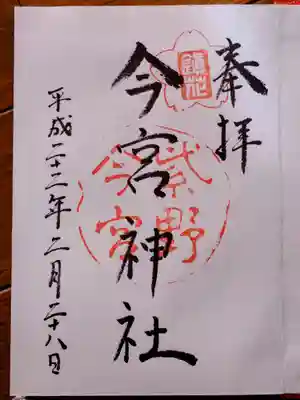 奉拝
鎮花
紫野
今宮
今宮神社
平成二十二年二月二十八日